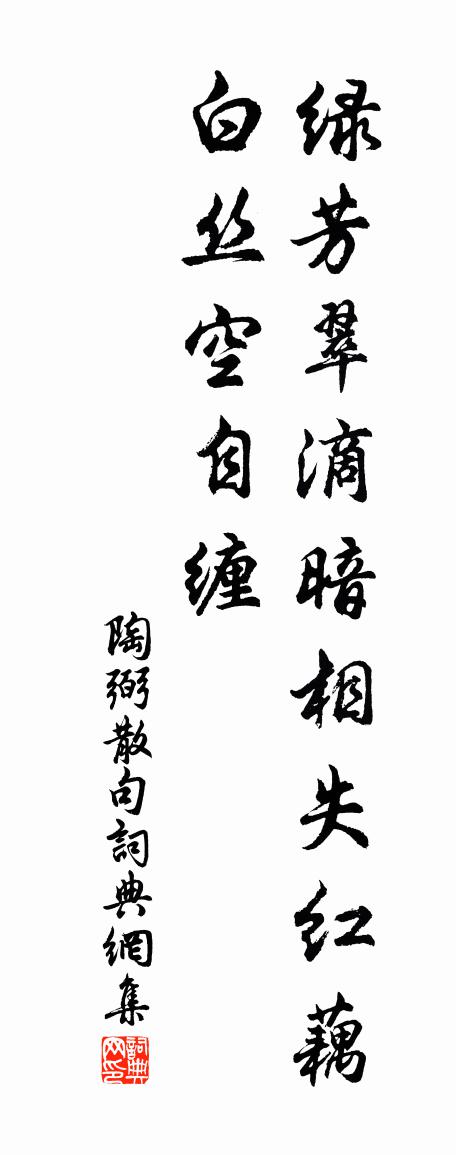 绿芳翠滴暗相失红藕
白丝空自缠
陶弼散句詞典網集
詞典
网印